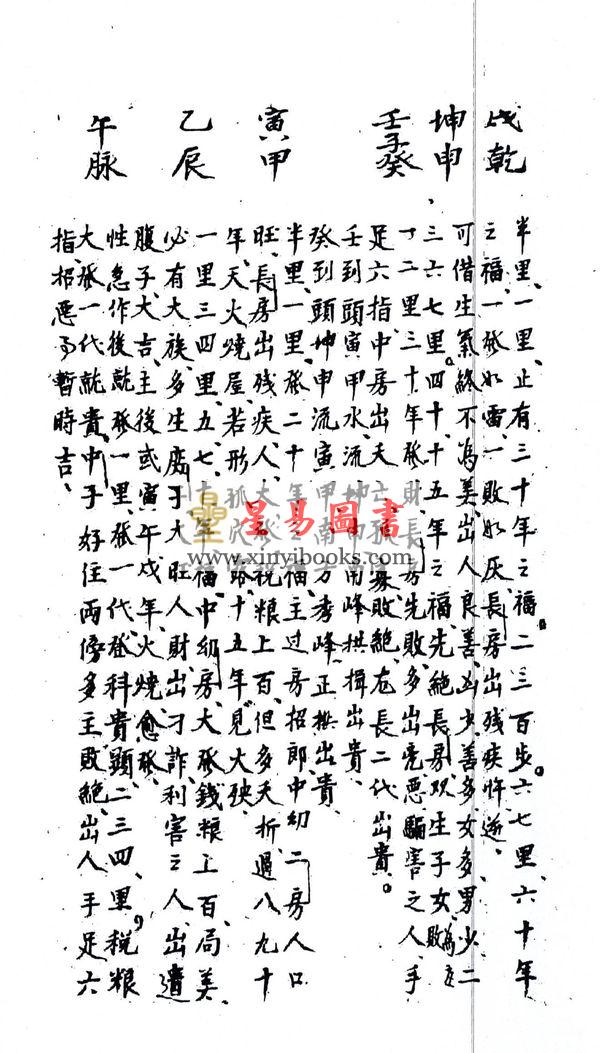 戌乾
半里一里止有三十年之福。二三百步。六七里、六十年
之福、一發如雷、一敗如灰、長房出残疾忤逆、
坤申
可借生氣、終不為美、出人良善、凶少善多、女多男少、二
三六七里。四十十五年之福、先絕長房、双生子女、敗
壬子癸
一二里三十年發、財長房先敗、多出兇惡騙害之人、手
足六指、中房出夭、寡敗絕、尨長二代出貴。
壬到頭寅甲水流、坤南峰拱揖出貴、
癸到頭坤申流寅甲南方秀峰正拱出貴、
寅甲
半里一里發二十年福、主过房招郎、中幼二房人口
旺、長房出残疾人、大發税粮上百、但多夭折、過八九十
年、天火燒屋、若形孤十五年、見大殃、
乙辰
一里三四里五七、十年福、中幼房大發錢粮上百、局美、
必有大族、多生庶子、大旺人財、出刁詐利害之人、出遺
腹子、大吉、主後或寅午戌年、火燒愈發、
午脉
性急作後就發、一里發一代、登科貴顯、二三四里、税粮
大發、一代就貴、中子好住、兩傍多主敗絕、出人手足六
指、招惡、暫時吉、
星易圖書
www.xinyibooks.com